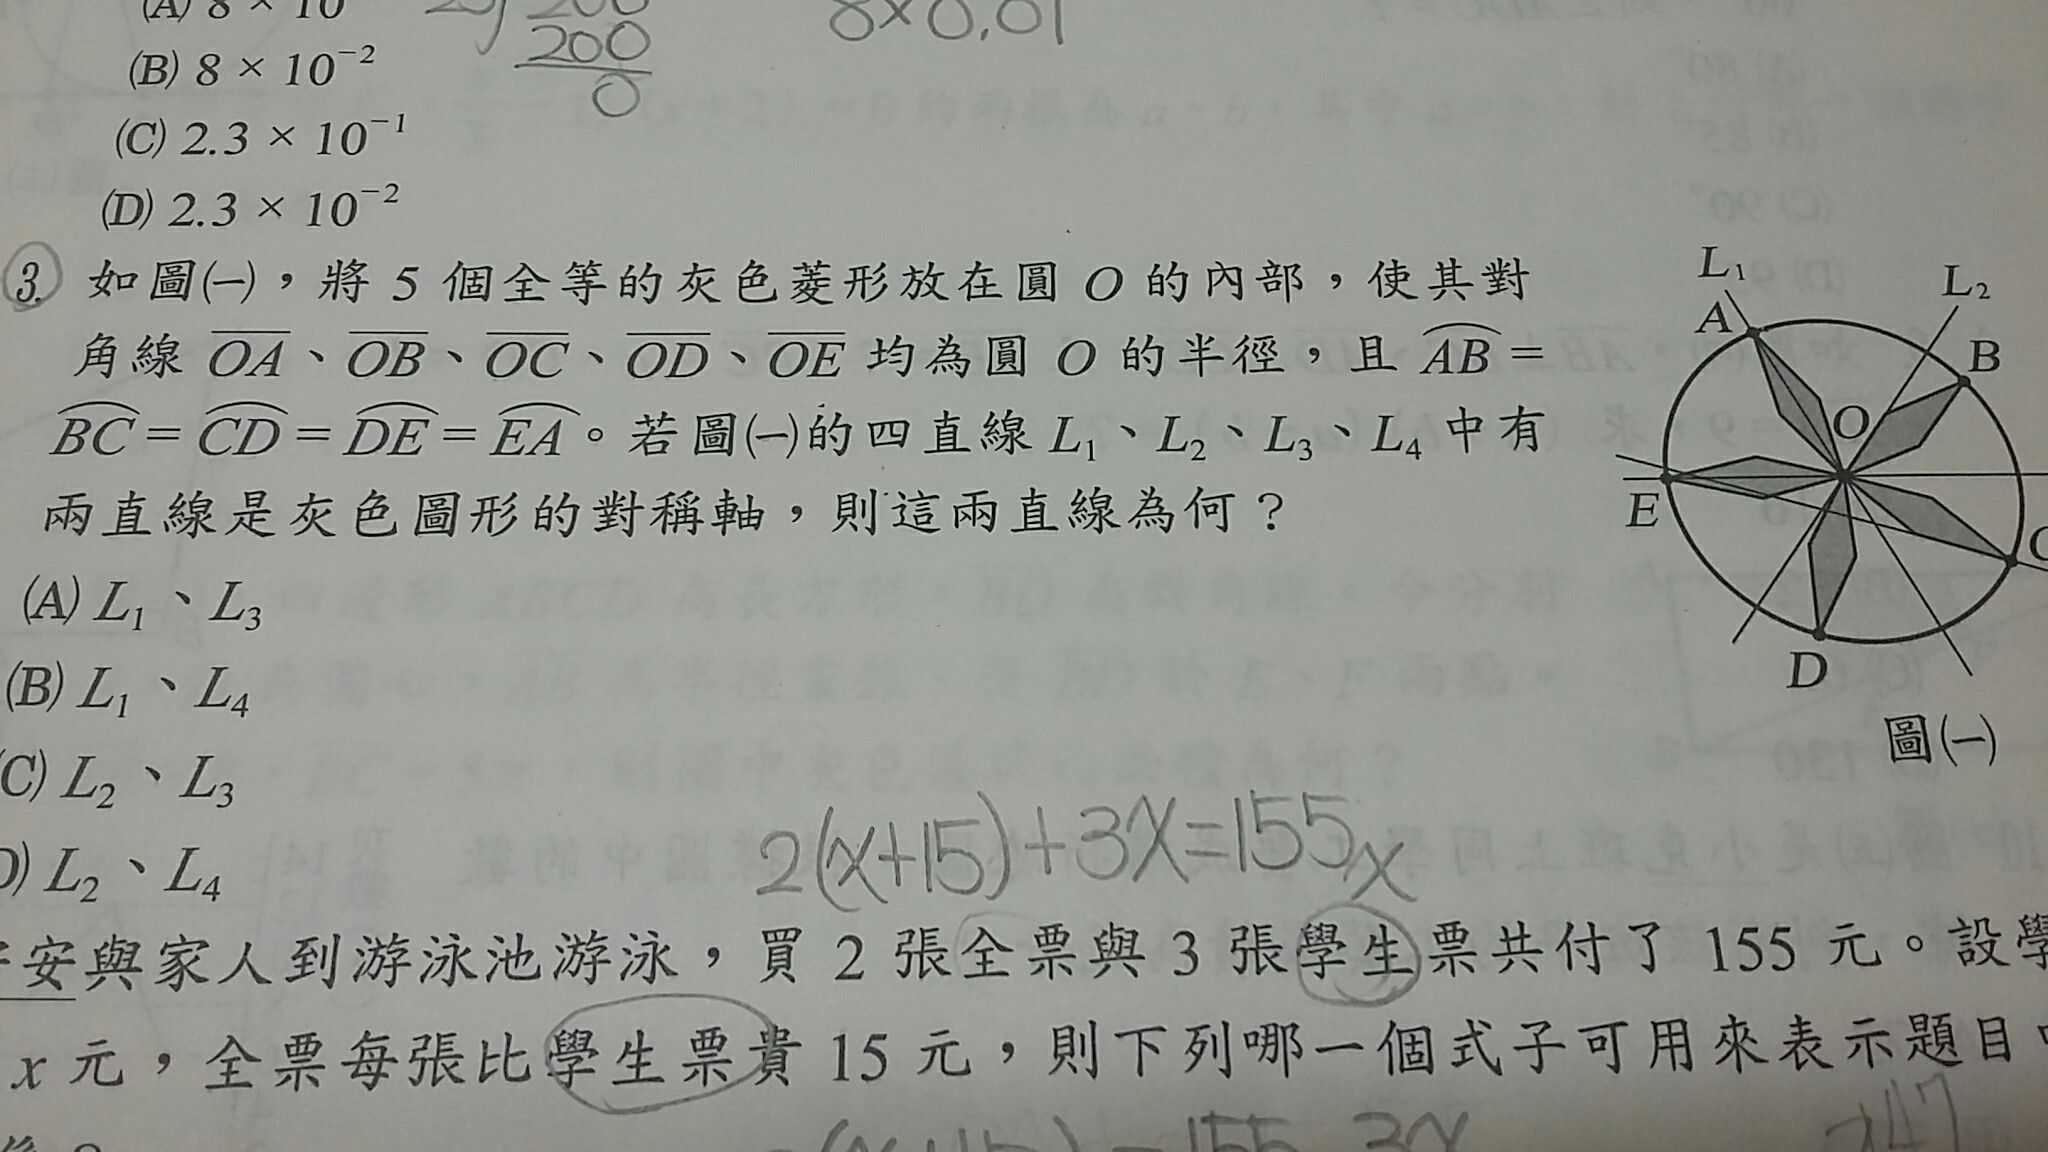 (B) 8 × 10⁻²
(C) 2.3 × 10⁻¹
(D) 2.3 × 10⁻²
200
200
0
8×0.01
3. 如圖㈠，將 5 個全等的灰色菱形放在圓 O 的內部，使其對
角線 O̅A̅、O̅B̅、O̅C̅、O̅D̅、O̅E̅ 均為圓 O 的半徑，且 A͡B =
B͡C = C͡D = D͡E = E͡A。若圖㈠的四直線 L₁、L₂、L₃、L₄ 中有
兩直線是灰色圖形的對稱軸，則這兩直線為何？
(A) L₁、L₃
(B) L₁、L₄
(C) L₂、L₃
(D) L₂、L₄
L₁
L₂
A
B
O
E
C
D
圖㈠
2(x+15)+3x=155
x
安與家人到游泳池游泳，買 2 張全票與 3 張學生票共付了 155 元。設學
x 元，全票每張比學生票貴 15 元，則下列哪一個式子可用來表示題目